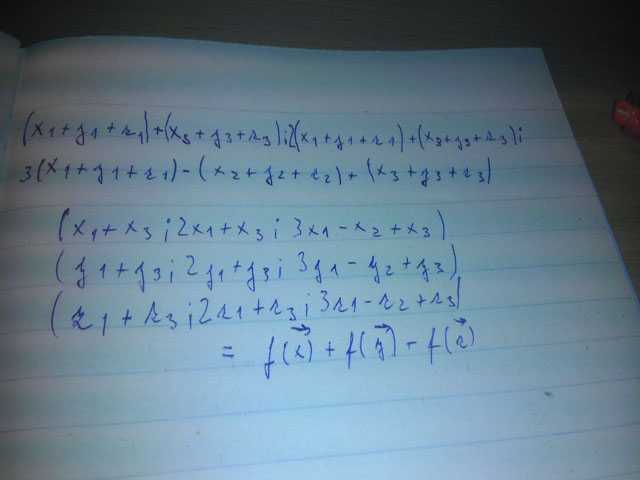 (x1+y1+z1)+(x3+y3+z3);2(x1+y1+z1)+(x3+y3+z3);
3(x1+y1+z1)-(x2+y2+z2)+(x3+y3+z3)
(x1+x3;2x1+x3;3x1-x2+x3)
(y1+y3;2y1+y3;3y1-y2+y3)
(z1+z3;2z1+z3;3z1-z2+z3)
= f(x⃗)+f(y⃗)-f(z⃗)